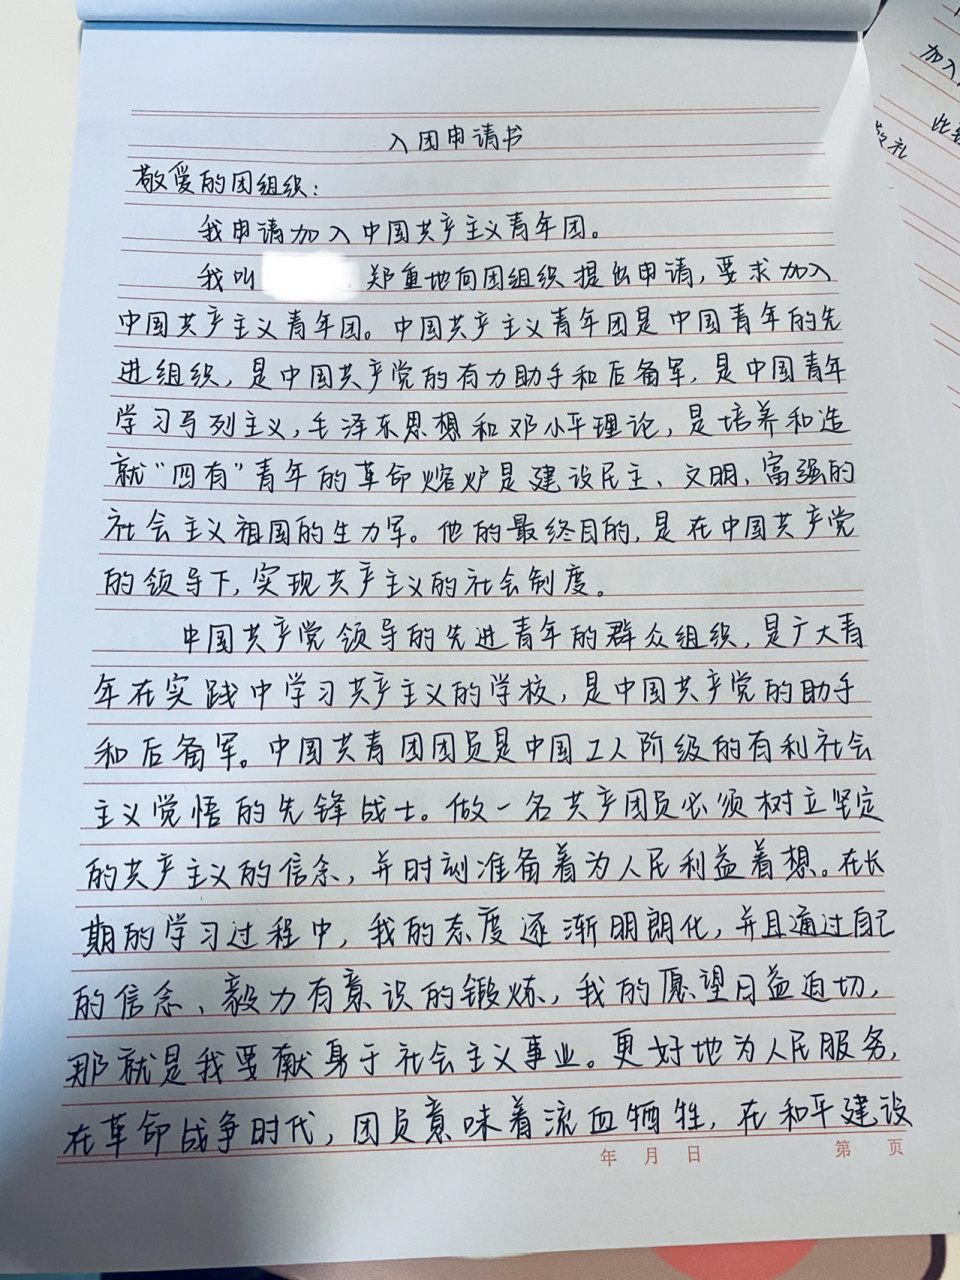 入团申请书
敬爱的团组织：
我申请加入中国共产主义青年团。
我叫 郑重地向团组织提出申请，要求加入
中国共产主义青年团。中国共产主义青年团是中国青年的先
进组织，是中国共产党的有力助手和后备军，是中国青年
学习马列主义，毛泽东思想和邓小平理论，是培养和造
就“四有”青年的革命熔炉是建设民主、文明、富强的
社会主义祖国的生力军。他的最终目的，是在中国共产党
的领导下，实现共产主义的社会制度。
中国共产党领导的先进青年的群众组织，是广大青
年在实践中学习共产主义的学校，是中国共产党的助手
和后备军。中国共青团团员是中国工人阶级的有利社会
主义觉悟的先锋战士。做一名共产团员必须树立坚定
的共产主义的信念，并时刻准备着为人民利益着想。在长
期的学习过程中，我的态度逐渐明朗化，并且通过自己
的信念、毅力有意识的锻炼，我的愿望日益迫切，
那就是我要献身于社会主义事业。更好地为人民服务，
在革命战争时代，团员意味着流血牺牲，在和平建设
年 月 日
第 页
加入
此致
敬礼